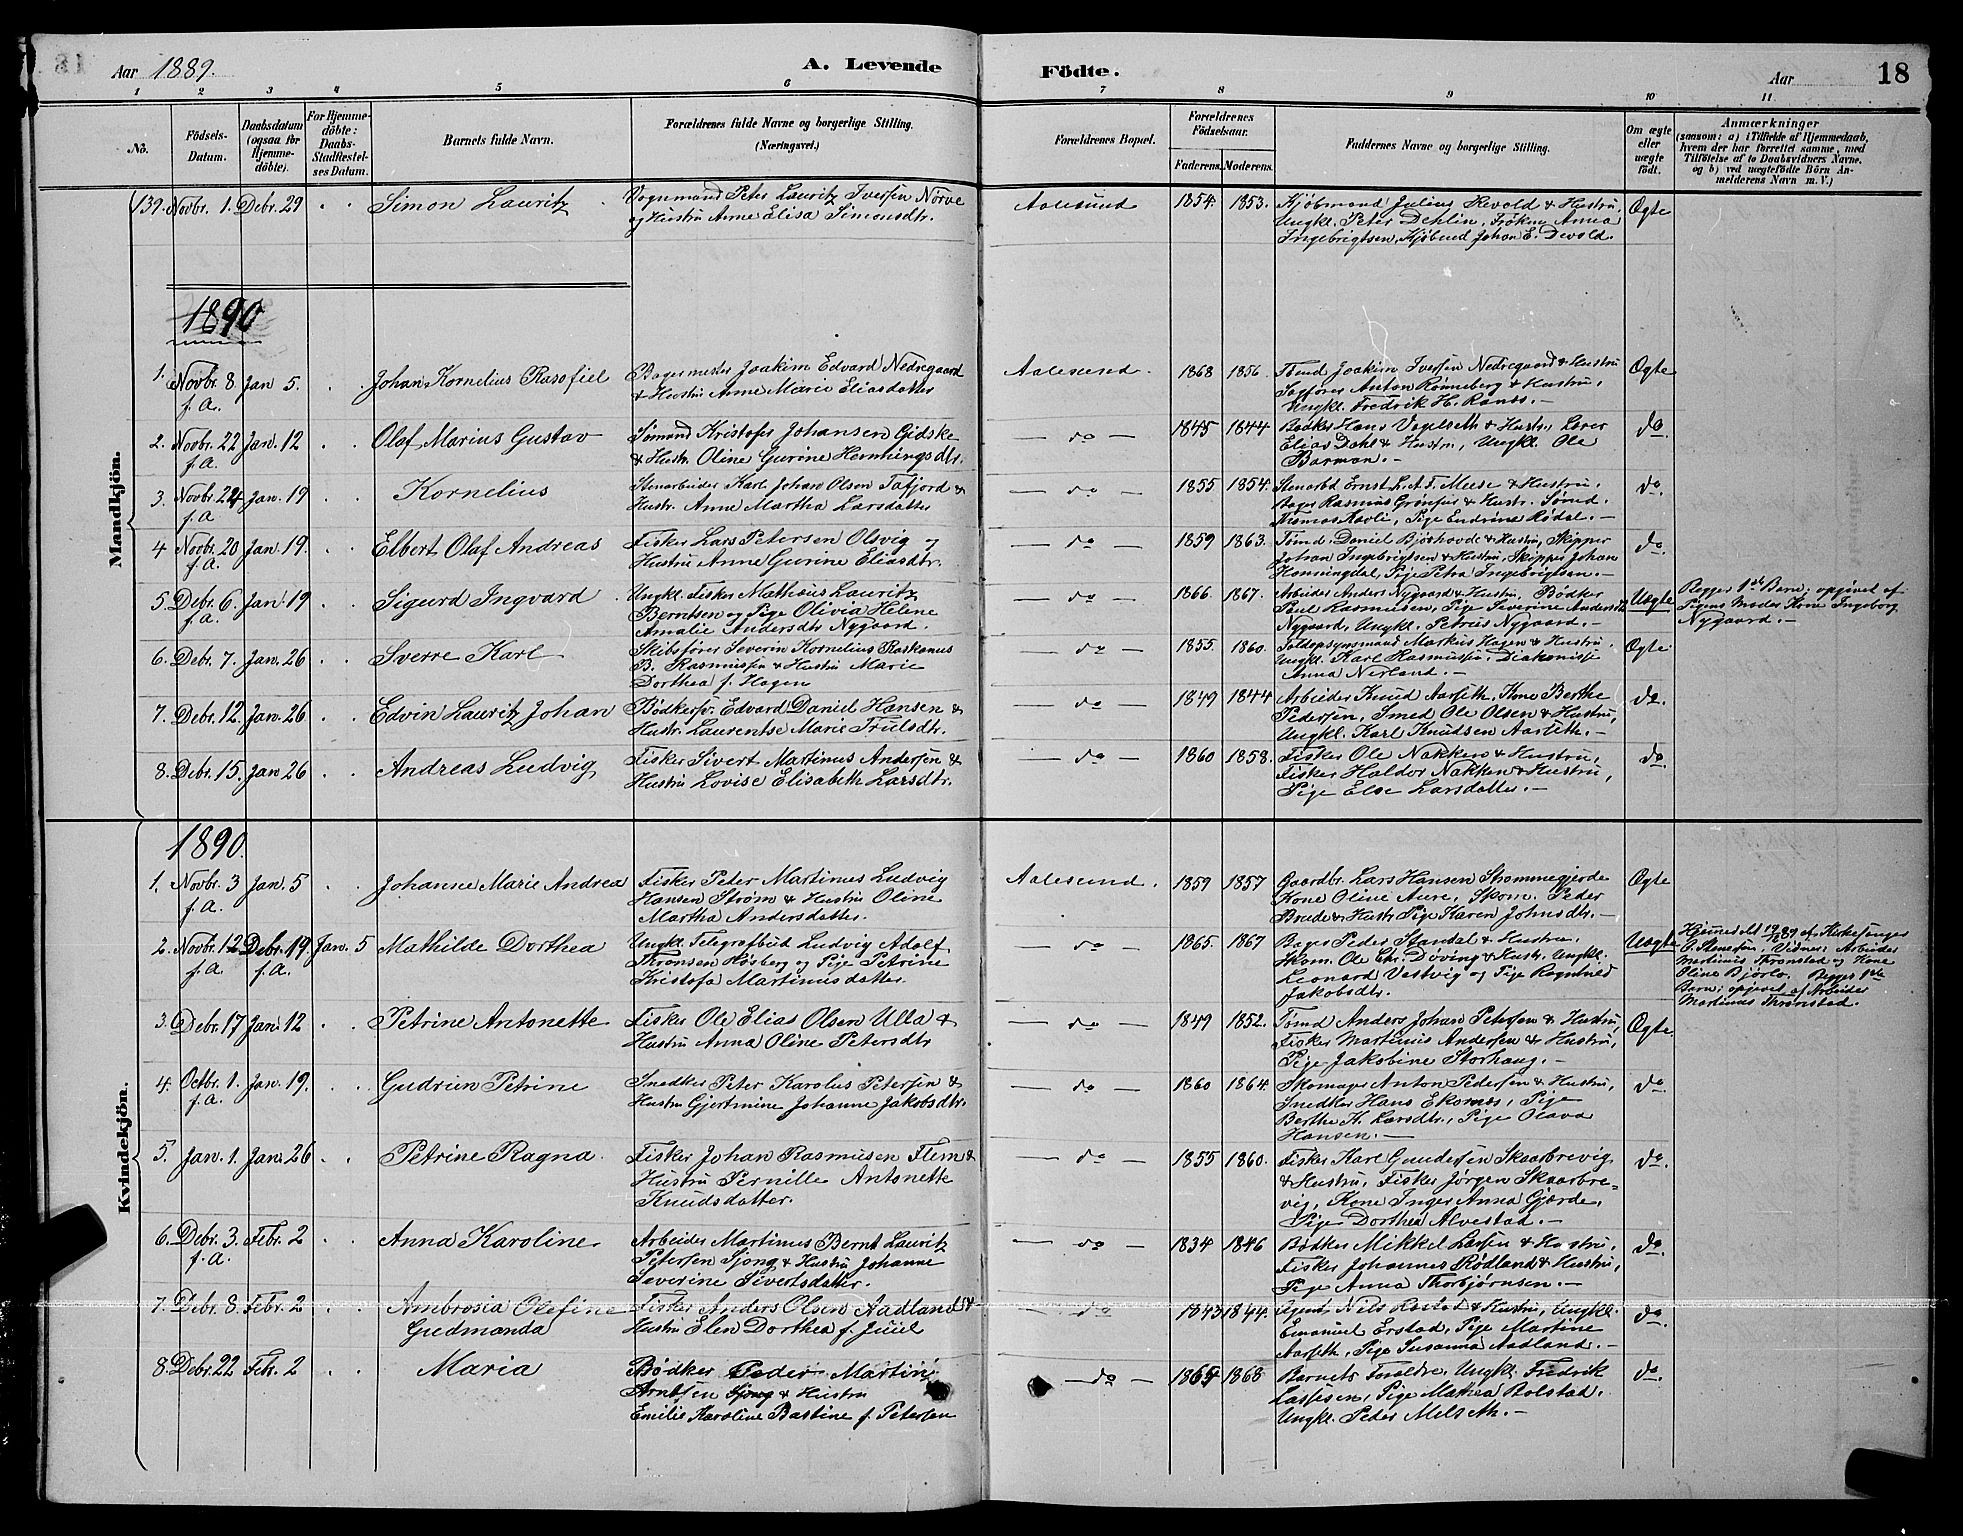 Aar 1889. A. Levende Födte. Aar 18
1 2 3 4 5 6 7 8 9 10 11
No. Födsels-Datum. Daabsdatum (ogsaa for Hjemme-döbte). For Hjemme-döbte: Daabs-Stadfestel-ses Datum. Barnets fulde Navn. Forældrenes fulde Navne og borgerlige Stilling. (Næringsvei.) Forældrenes Bopæl. Forældrenes Födselsaar. Faderens. Moderens. Faddernes Navne og borgerlige Stilling. Om ægte eller uægte födt. Anmærkninger (saasom: a) i Tilfælde af Hjemmedaab, hvem der har forrettet samme, med Tilföielse af to Daabsvidners Navne, og b) ved uægtefödte Börn An-melderens Navn m. V.)
Mandkjön.
139. Novbr. 1. Debr. 29 Simon Lauritz Vognmand Peter Lauritz Iversen Nörve Aalesund 1854. 1853. Kjöbmand Julius Devold & Hustru, Ægte
og Hustru Anne Elisa Simonsdtr. Ungkl. Peter Dehlin, Fröken Anna
Ingebrigtsen, Kjöbmd Johan E. Devold.
1890
1. Novbr. 8. Jan 5. Johan Kornelius Rasofiel Bagermester Joakim Edvard Nedregaard Aalesund. 1868 1856. Joakim Iversen Nedregaard & Hustru Ægte
f.A. & Hustru Anne Marie Eliasdatter Anton Rønneberg & Hustru,
Ungkl. Fredrik H. Rands.—
2. Novbr. 22 Jan. 12 Olaf Marius Gustav Sömand Kristofer Johansen Gidske — do — 1845 1844 Bødker Hans Vegelseth & Hustr, do.
f.A. & Hustr. Oline Gurine Henningsdtr. Elias Dahl & Hustru, Ungkl. Ole
Barman.—
3. Novbr. 24 Jan. 19 Kornelius Stenarbeider Karl Johan Olsen Tafjord & — do — 1855 1854. Stenarbd Ernst L. A. F. Meese & Hustru, do.
f.A. Hustr. Anne Martha Larsdatter Bager Rasmus Grönfur & Hustr. Sömd.
Thomas Kavli, Pige Endrine Rødal.—
4 Novbr. 20 Jan. 19. Elbert Olaf Andreas Fisker Lars Petersen Olsvig og — do — 1859 1863. Tømd. Daniel Bjørhovde & Hustru, Skipper do.
f.A. Hustru Anne Gurine Eliasdtr. Johan Ingebrigtsen & Hustru, Skipper Johan
Honningdal, Pige Petra Ingebrigtsen.—
5. Debr. 6. Jan. 19 Sigurd Ingvard Ungkl. Fisker Mathias Lauritz — do — 1866 1867. Arbeider Anders Nygaard & Hustru, Bödker Uægte Begges 1ste Barn; opgivet af
f.A. Berntsen og Pige Olivia Helene Paul Rasmussen, Pige Severine Andersdtr Pigens Moder Kone Ingeborg
Amalie Andersdtr Nygaard. Nygaard, Ungkl. Petrus Nygaard.— Nygaard.—
6. Debr. 7. Jan. 26 Sverre Karl Skibsfører Severin Kornelius Raskanus — do — 1855. 1860. Toldopsynsmand Markus Hagen & Hustru. Ægte
B. Rasmussen & Hustru Marie Ungkl. Karl Rasmussen. Diakonisse
Dorthea f. Hagen Anna Nerland.—
7. Debr. 12. Jan. 26 Edvin Lauritz Johan Bödkersv. Edvard Daniel Hansen & — do — 1849 1844 Arbeider Knud Aarseth, Kone Berthe do.
Hustr. Laurentse Marie Trulsdtr. Pedersen, Smed Ole Olsen & Hustru,
Ungkl. Karl Knudsen Aarseth.—
8. Debr. 15. Jan 26 Andreas Ludvig Fisker Sivert Martinus Andersen & — do — 1860 1858. Fisker Ole Nakken & Hustru, do.
Hustru Lovise Elisabeth Larsdtr. Fisker Haldor Nakken & Hustru,
Pige Else Larsdatter.—
Kvindekjön.
1890.
1. Novbr. 3 Jan. 5 Johanne Marie Andrea Fisker Peter Martinus Ludvig Aalesund. 1859 1857 Gaardbr. Lars Hansen Strommegjerde Ægte
f.A. Hansen Strøm & Hustru Oline Kone Oline Aure, Skom. Peder
Martha Andersdatter. Brude & Hustr, Pige Karen Johnsdtr.—
2. Novbr. 12 Debr. 19 Jan. 5 Mathilde Dorthea Ungkl. Telegrafbud Ludvig Adolf — do — 1865. 1867 Bager Peder Standal & Hustru. Uægte Hjemmedbt 19/12 89 af Kirkesanger
f.A. f.A. Thronsen Høsberg og Pige Petrine Skom. Ole Chr. Døving & Hustr. Ungkl. O. Stenersen, Vidner: Arbeider
Kristofa Martinusdatter. Leonard Vestvig og Pige Ragnhild Martinus Thronstad og Kone
Jakobsdtr. Oline Bjørlo. Begges 1ste
Barn; opgivet af Arbeider
Martinus Thronstad.
3. Debr. 17 Jan. 12 Petrine Antonette Fisker Ole Elias Olsen Ulla & — do — 1849 1852. Tømd Anders Johan Petersen & Hustru, Ægte.
Hustru Anna Oline Petersdtr Fisker Martinus Andersen & Hustru,
Pige Jakobine Storhaug.—
4. Octbr. 1. Jan. 19. Gudrun Petrine Snedker Peter Karolus Petersen & — do — 1860 1864. Skomager Anton Pedersen & Hustru, do.
f.A. Hustru Gjertmine Johanne Jakobsdtr. Snedker Hans Ekornes, Pige
Berthe K. Larsdtr., Pige Olava
Hansen.—
5. Jan. 1. Jan. 26 Petrine Ragna. Fisker Johan Rasmusen Flem & — do — 1855 1860. Fisker Karl Gundersen Skaarbrevig do.
Hustru Pernille Antonette & Hustru, Fisker Jørgen Skaarbre-
Knudsdatter. vig, Kone Inger Anna Gjørde,
Pige Dorthea Alvestad.—
6. Debr. 3. Febr. 2 Anna Karoline Arbeider Martinus Bernt Lauritz — do — 1834 1846 Bødker Mikkel Larsen & Hustru, do.
f.A. Petersen Sjong & Hustru Johanne Fisker Johannes Rødland & Hustru,
Severine Sivertsdatter. Pige Anna Thorbjørnsen.—
7. Debr. 8. Febr. 2 Ambrosia Olefine Fisker Anders Olsen Aadland & — do 1843 1844. Agent Nils Rostad & Hustru, Ungkl. do.
Gudmanda Hustru Elen Dorthea f. Juul Emanuel Erstad, Pige Martine
Aarseth, Pige Susanna Aadland.—
8. Debr. 22 Febr. 2 Maria Bödker Peder Martin — do — 1864 1868 Barnets Foraldre, Ungkl. Fredrik do.
Arntsen Sjong & Hustru Lassesen, Pige Mathea Bolstad.
Emilie Karoline Bastine f. Petersen Ungkl. Peter Melseth.—